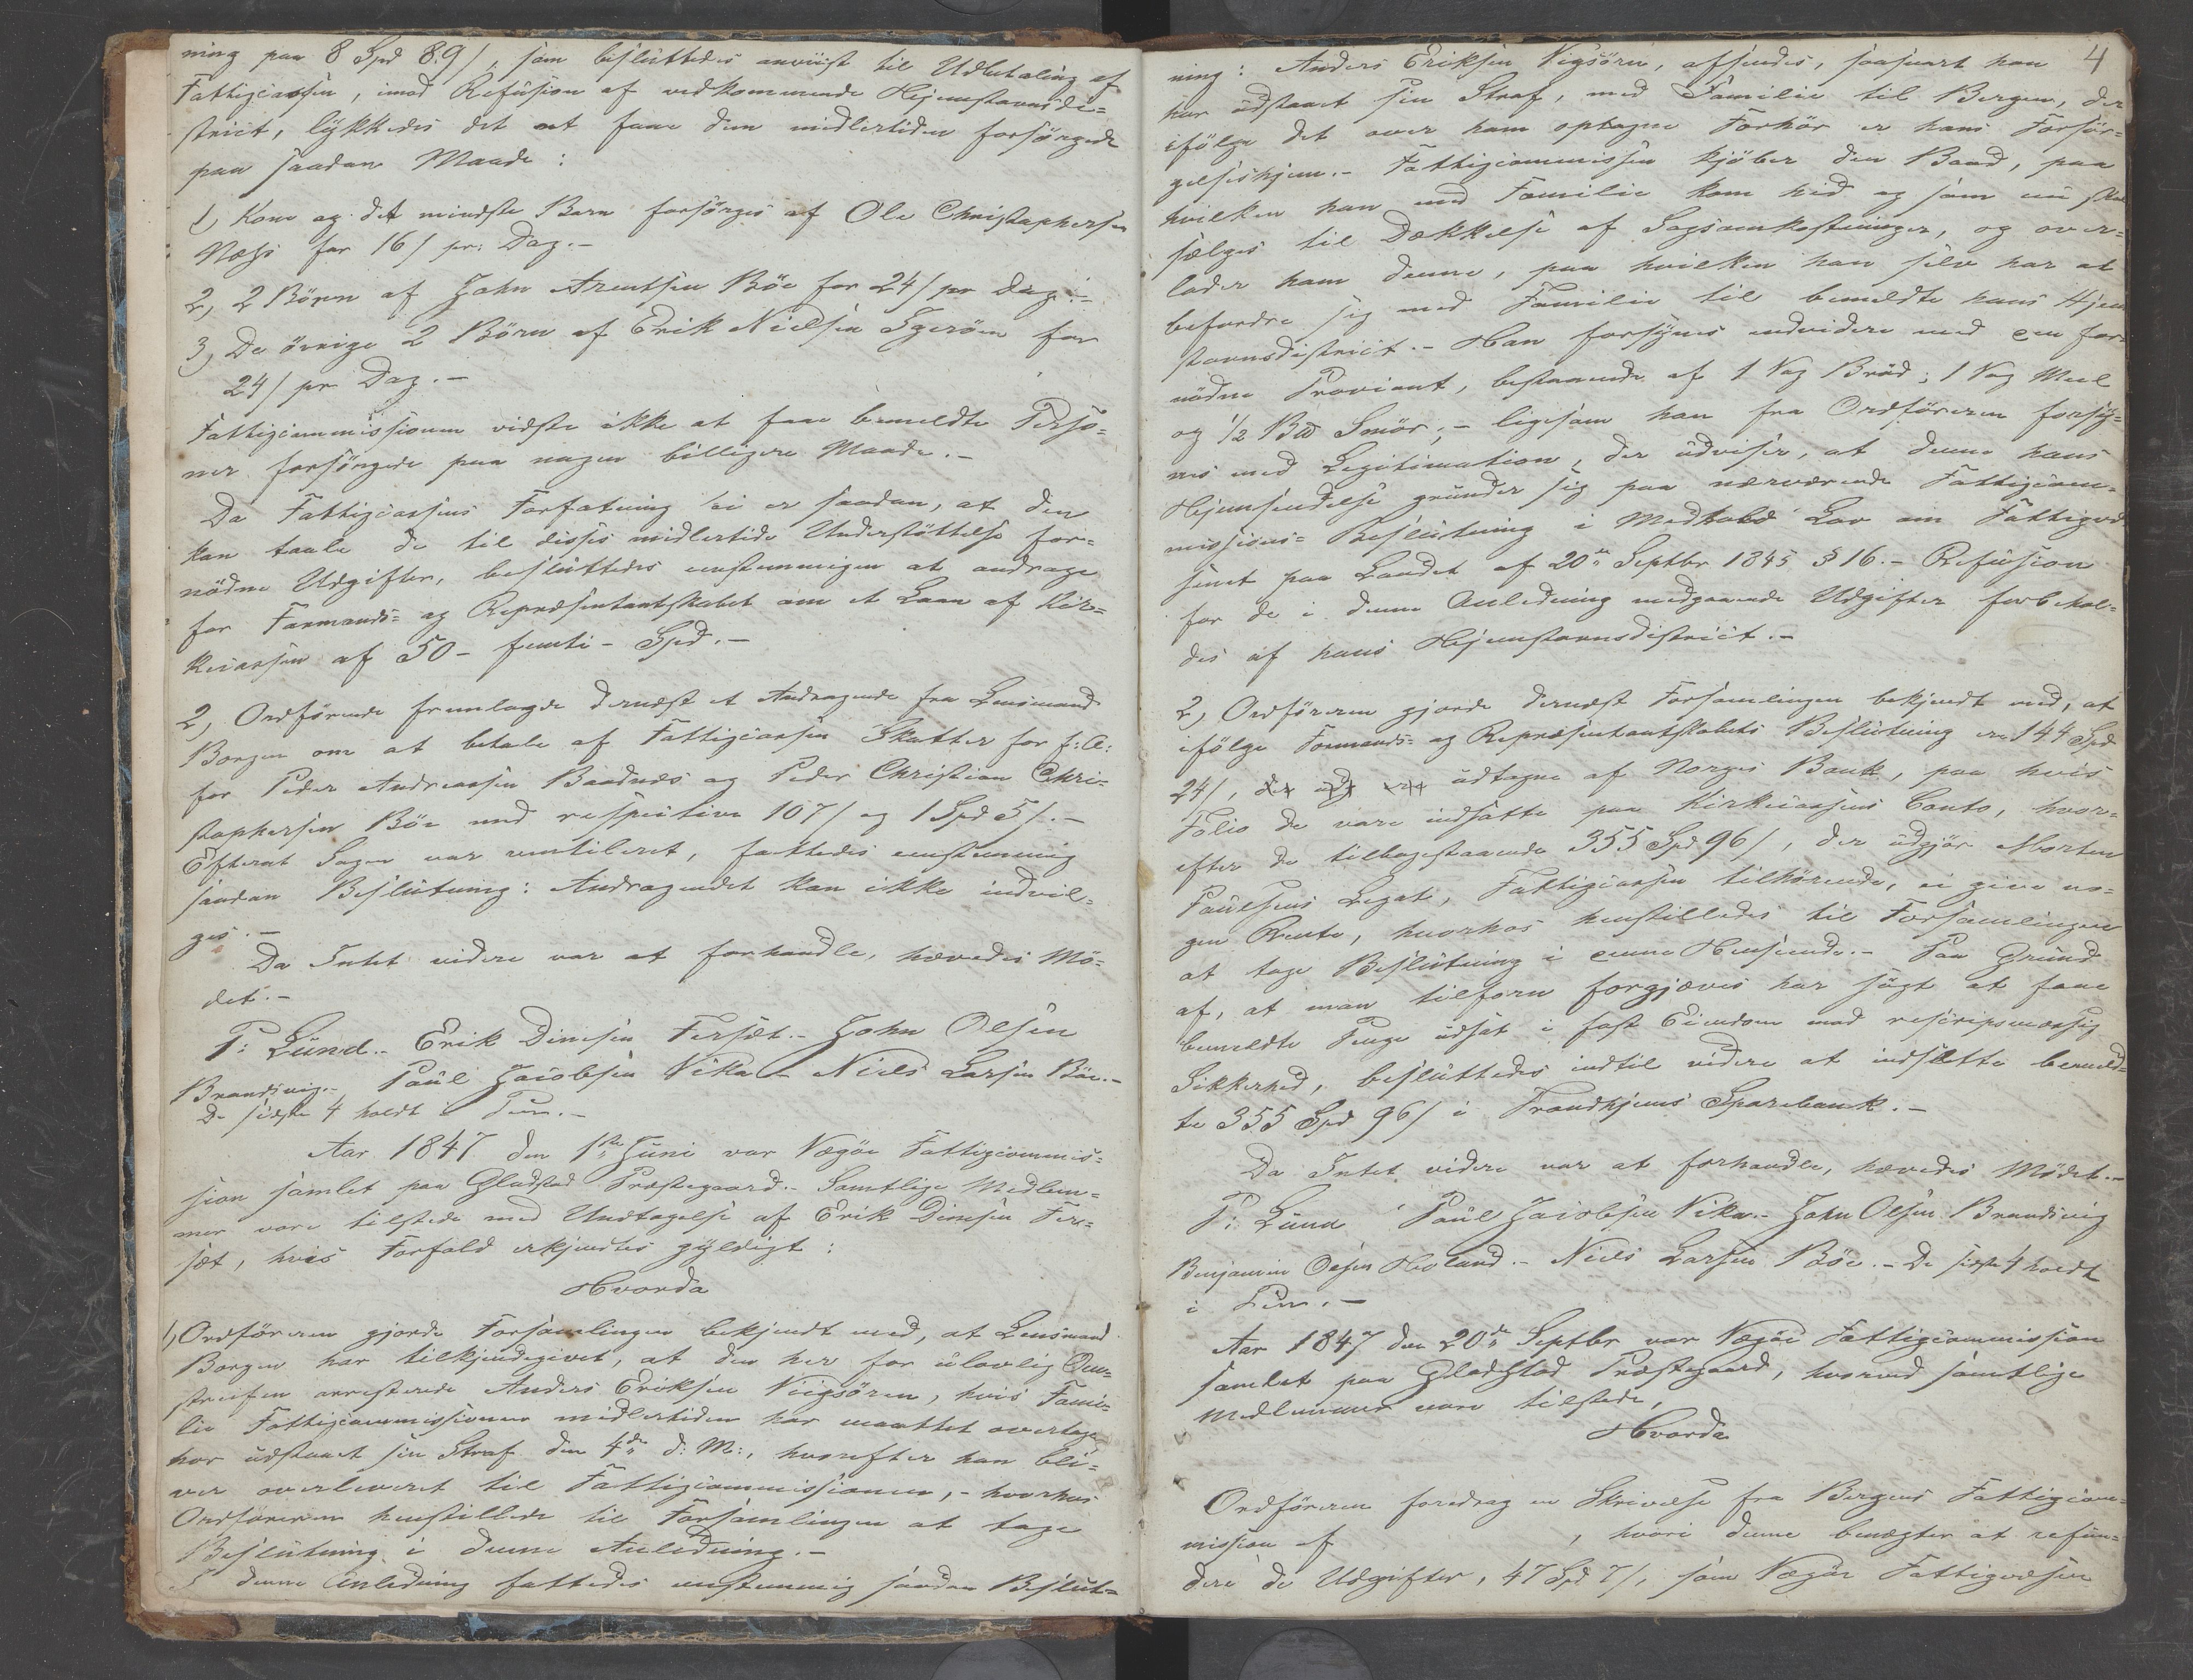 ning paa 8 Spd 89/, som besluttedes anviist til Udbetaling af
Fattigcassen, imod Refusion af vedkommende Hjemstavnsdi=
strict, lykkedes det at faae dem midlertiden forsörgede
paa saadan Maade:
1, Kone og det mindste Barn forsörges af Ole Christophersen
Næss for 16/ pr: Dag.-
2, 2 Börn af John Arentsen Böe for 24/ pr Dag.-
3, De övrige 2 Börn af Erik Nielsen Igeröen for
24/ pr Dag.-
Fattigcommissionen vidste ikke at faae bemeldte Perso=
ner forsörgede paa nogen billigere Maade.-
Da Fattigcassens Forfatning ei er saadan, at den
kan taale de til disses midlertide Understöttelse for=
nödne Udgifter, besluttedes eenstemmigen at andrage
for Formands= og Repræsentantskabet om et Laan af Kir=
kecassen af 50- femti- Spd.-
2, Ordförende fremlagde dernæst et Andragende fra Lensmand
Borgen om at betale af Fattigcassen Skatter for f: A:
for Peder Andreassen Baadnæs og Peder Christian Chri=
stophersen Böe med respective 107/ og 1 Spd 5/.-
Efterat Sagen var ventileret, fattedes eenstemmig
saadan Beslutning: Andragendet kan ikke indvil=
ges.-
Da Intet videre var at forhandle, hævedes Mö=
det.-
P: Lund.- Erik Dinesen Fersæt.- John Olsen
Brandsvig.- Paul Jacobsen Vika.- Niels Larsen Böe.-
De sidste 4 holdt i Pen.-
Aar 1847 den 1ste Juni var Vegöe Fattigcommis=
sion samlet paa Gladstad Præstegaard.- Samtlige Medlem=
mer vare tilstede med Undtagelse af Erik Dinesen Fer=
sæt, hvis Forfald erkjendtes gyldigt:
Hvorda
1, Ordföreren gjorde Forsamlingen bekjendt med, at Lensmand
Borgen har tilkjendegivet, at den her for ulovlig Om=
streifen arresterede Anders Eriksen Viigsören, hvis Fami=
lie Fattigcommissionen midlertiden har maattet overtage
har udstaaet sin Straf den 4de d: M:, hvorefter han bli=
ver overleveret til Fattigcommissionen,- hvorhos
Ordföreren henstillede til Forsamlingen at tage
Beslutning i denne Anledning.-
I denne Anledning fattedes eenstemmig saadan Beslut=
4
ning: Anders Eriksen Vigsören, afsendes, saasnart han
har udstaaet sin Straf, med Familie til Bergen, der
ifölge det over ham optagne Forhör er hans Forsör=
gelseshjem.- Fattigcommissionen kjöber den Baad, paa
hvilken han med Familie kom hid og som nu skal
sælges til Dækkelse af Sagsomkostninger, og over=
lader ham denne, paa hvilken han selv har at
befordre sig med Familie til bemeldte hans Hjem
stavnsdistrict.- Han forsynes endvidere med den for=
nödne Proviant, bestaaende af 1 Vog Bröd; 1 Vog Meel
og 1/2 B℔ Smör;- ligesom han fra Ordföreren forsy=
nes med Legitimation, der udviser, at denne hans
Hjemsendelse grunder sig paa nærværende Fattigcom=
missions= Beslutning i Medhold Lov om Fattigvæ
senet paa Landet af 20de Septbr 1845 § 16.- Refusion
for de i denne Anledning medgaaende Udgifter forbehol=
des af hans Hjemstavnsdistrict.-
2, Ordföreren gjorde dernæst Forsamlingen bekjendt med, at
ifölge Formands= og Repræsentantskabets Beslutning ere 144 Spd
24/, udtagne af Norges Bank, paa hvis
Folio de vare indsatte paa Kirkecassens Conto, hvor=
efter de tilbagestaaende 355 Spd 96/, der udgjör Morten
Paulsens Legat, Fattigcassen tilhörende, ei give no=
gen Rente, hvorhos henstilledes til Forsamlingen
at tage Beslutning i denne Henseende.- Paa Grund
af, at man tilforn forgjæves har sögt at faae
bemeldte Penge udsat i fast Eiendom mod rescriptmæssig
Sikkerhed, besluttedes indtil videre at indsætte bemeld=
te 355 Spd 96/ i Trondhjems Sparebank.-
Da Intet videre var at forhandle, hævedes Mödet.-
P: Lund Paul Jacobsen Vika.- John Olsen Brandsvig
Benjamin Olsen Hovland.- Niels Larsen Böe.- De sidste 4 holdt
i Pen.-
Aar 1847 den 20de Septbr var Vegöe Fattigcommission
samlet paa Gladstad Præstegaard, hvorved samtlige
Medlemmer vare tilstede,
Hvorda
Ordföreren foredrog en Skrivelse fra Bergens Fattigcom=
mission af , hvori denne benægter at refun=
dere de Udgifter, 47 Spd 7/, som Vegöe Fattigvæsen